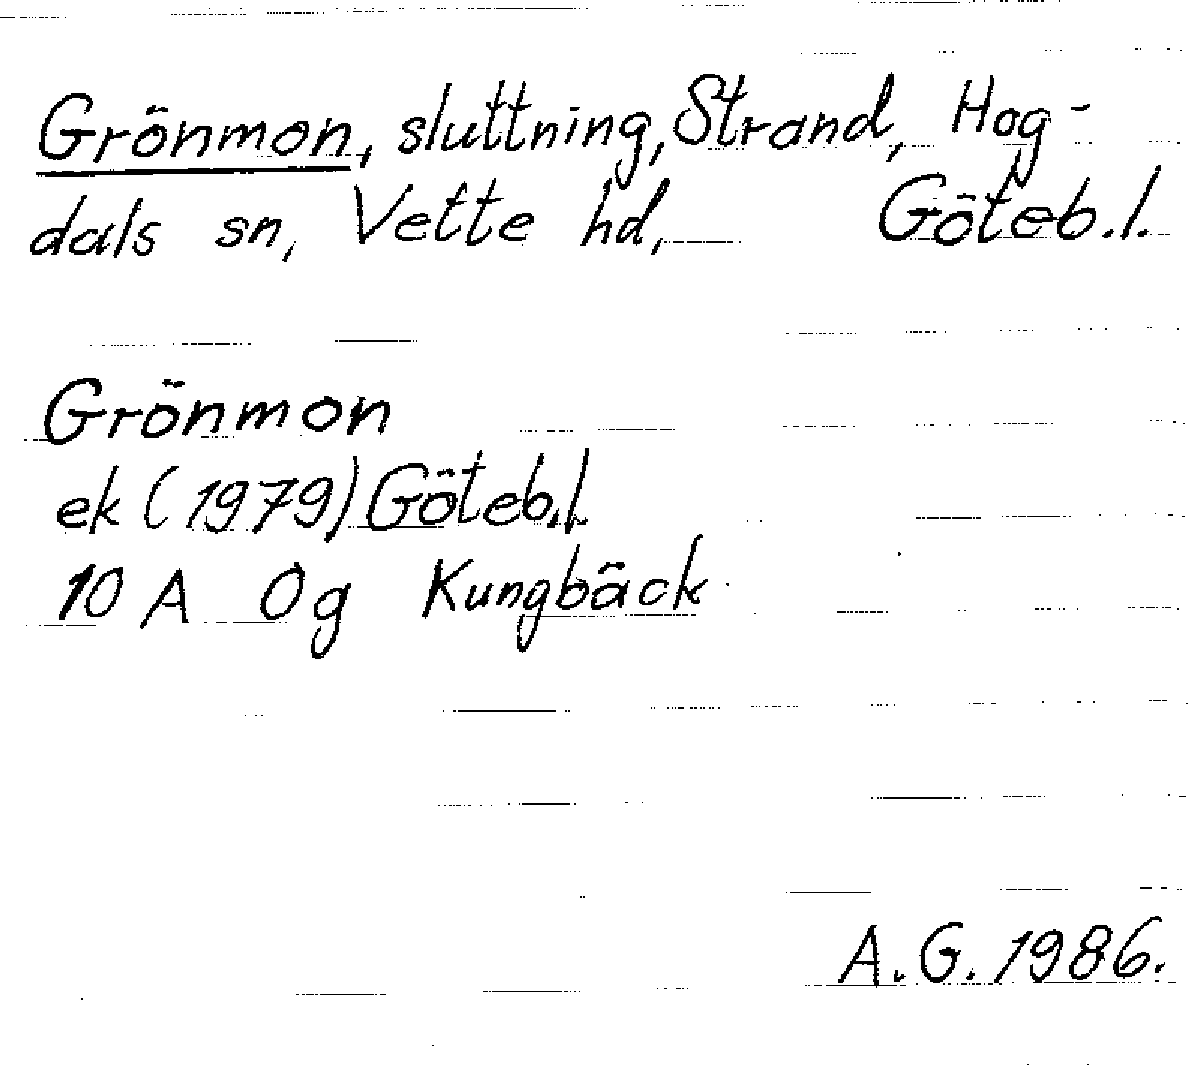 Grönmon, sluttning, Strand, Hog-
dals sn, Vette hd, Göteb.l.
Grönmon
ek (1979) Göteb.l.
10 A 0g Kungbäck
A.G. 1986.